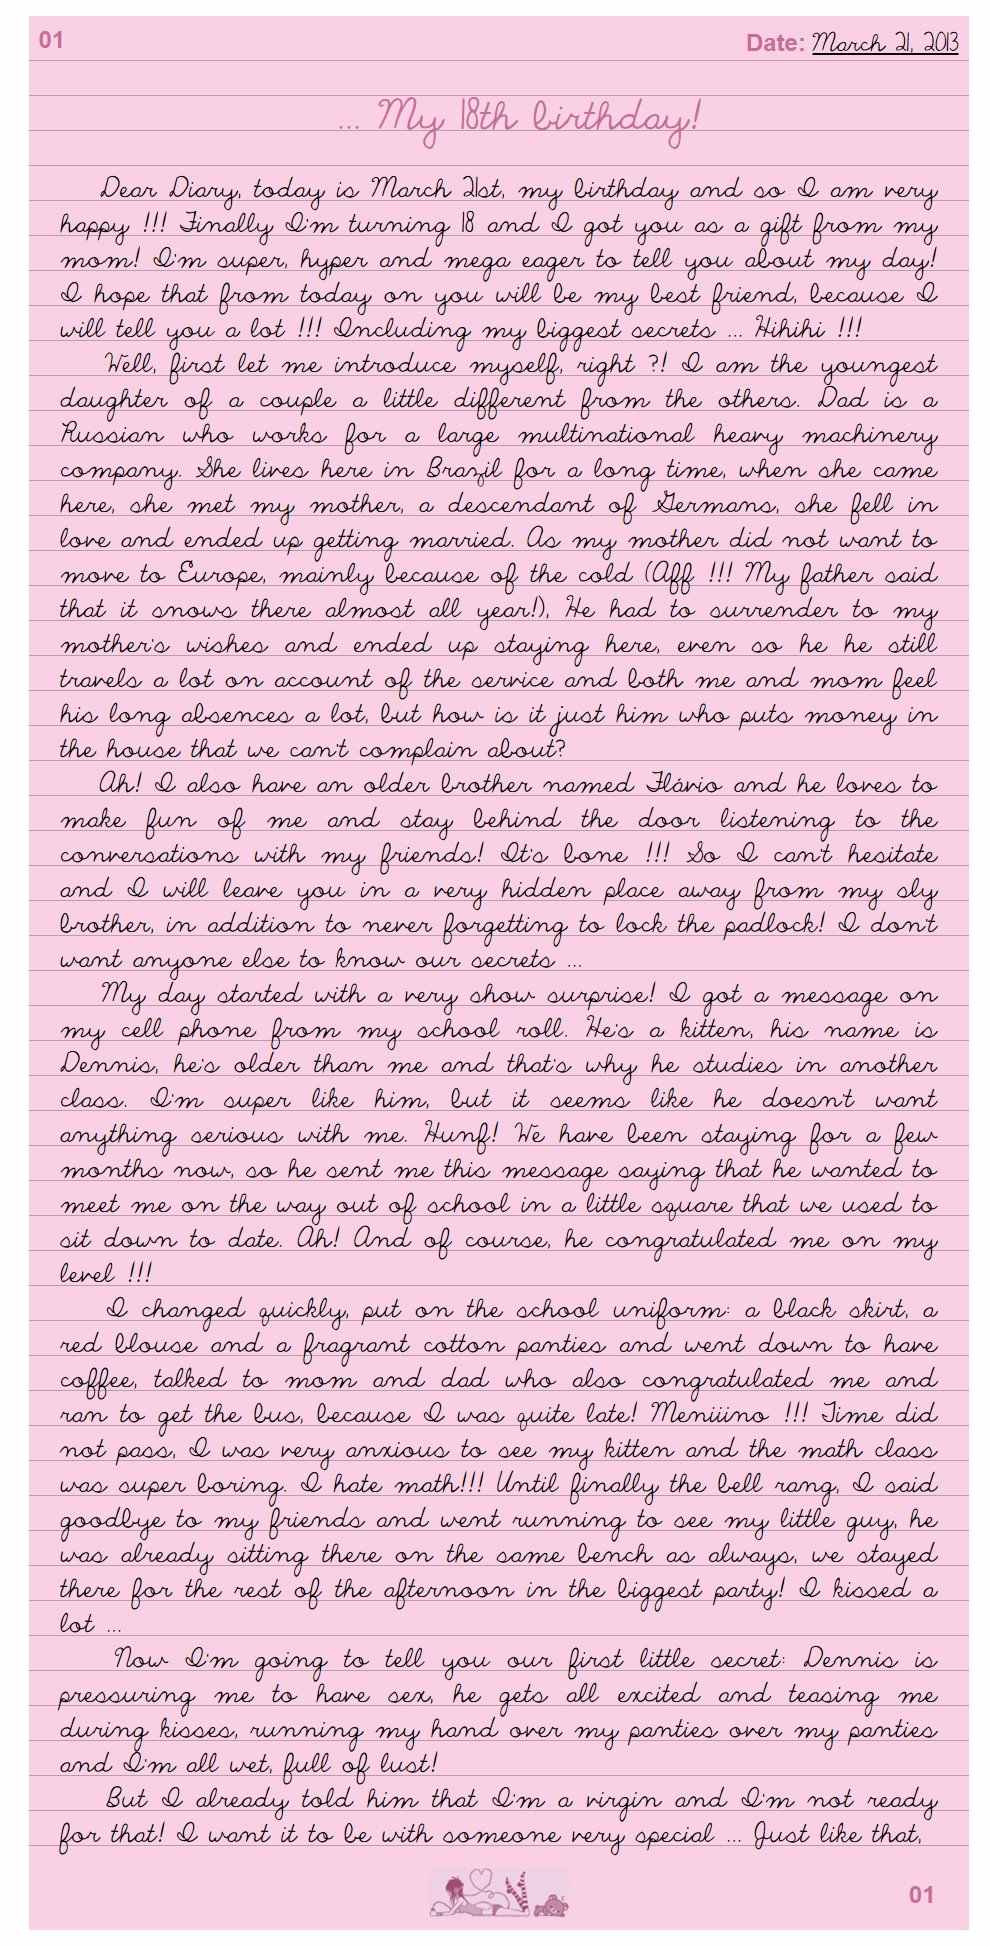 01
Date: March 21, 2013
... My 18th birthday!
Dear Diary, today is March 21st, my birthday and so I am very
happy !!! Finally I'm turning 18 and I got you as a gift from my
mom! I'm super, hyper and mega eager to tell you about my day!
I hope that from today on you will be my best friend, because I
will tell you a lot !!! Including my biggest secrets ... Hihihi !!!
Well, first let me introduce myself, right ?! I am the youngest
daughter of a couple a little different from the others. Dad is a
Russian who works for a large multinational heavy machinery
company. She lives here in Brazil for a long time, when she came
here, she met my mother, a descendant of Germans, she fell in
love and ended up getting married. As my mother did not want to
move to Europe, mainly because of the cold (Aff !!! My father said
that it snows there almost all year!), He had to surrender to my
mother's wishes and ended up staying here, even so he he still
travels a lot on account of the service and both me and mom feel
his long absences a lot, but how is it just him who puts money in
the house that we can't complain about?
Ah! I also have an older brother named Flávio and he loves to
make fun of me and stay behind the door listening to the
conversations with my friends! It's bone !!! So I can't hesitate
and I will leave you in a very hidden place away from my sly
brother, in addition to never forgetting to lock the padlock! I don't
want anyone else to know our secrets ...
My day started with a very show surprise! I got a message on
my cell phone from my school roll. He's a kitten, his name is
Dennis, he's older than me and that's why he studies in another
class. I'm super like him, but it seems like he doesn't want
anything serious with me. Hunf! We have been staying for a few
months now, so he sent me this message saying that he wanted to
meet me on the way out of school in a little square that we used to
sit down to date. Ah! And of course, he congratulated me on my
level !!!
I changed quickly, put on the school uniform: a black skirt, a
red blouse and a fragrant cotton panties and went down to have
coffee, talked to mom and dad who also congratulated me and
ran to get the bus, because I was quite late! Meniiino !!! Time did
not pass, I was very anxious to see my kitten and the math class
was super boring. I hate math!!! Until finally the bell rang, I said
goodbye to my friends and went running to see my little guy, he
was already sitting there on the same bench as always, we stayed
there for the rest of the afternoon in the biggest party! I kissed a
lot ...
Now I'm going to tell you our first little secret: Dennis is
pressuring me to have sex, he gets all excited and teasing me
during kisses, running my hand over my panties over my panties
and I'm all wet, full of lust!
But I already told him that I'm a virgin and I'm not ready
for that! I want it to be with someone very special ... Just like that,
01